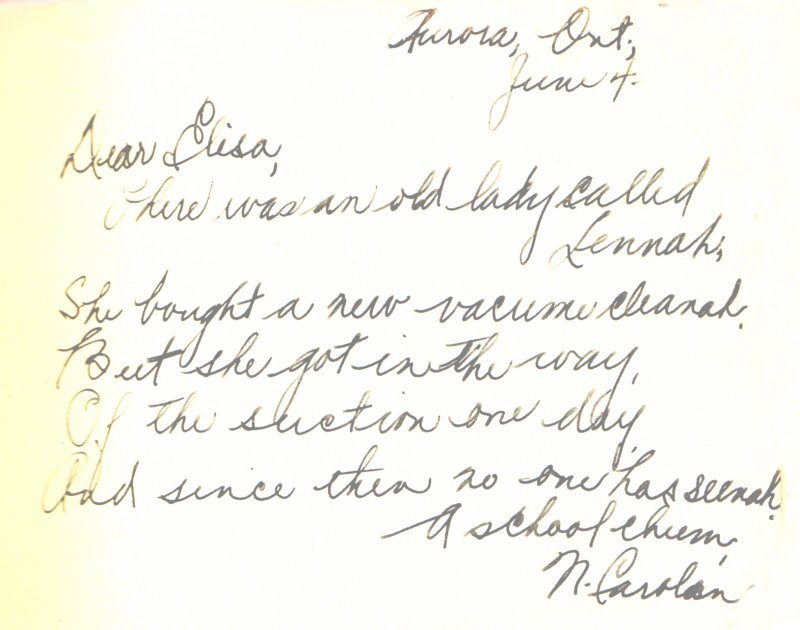 Aurora, Ont.,
June 4.
Dear Elisa,
There was an old lady called
Lennah,
She bought a new vacume cleanah.
But she got in the way,
Of the suction one day,
And since then no one has seenah.
A school chum,
N. Carolan